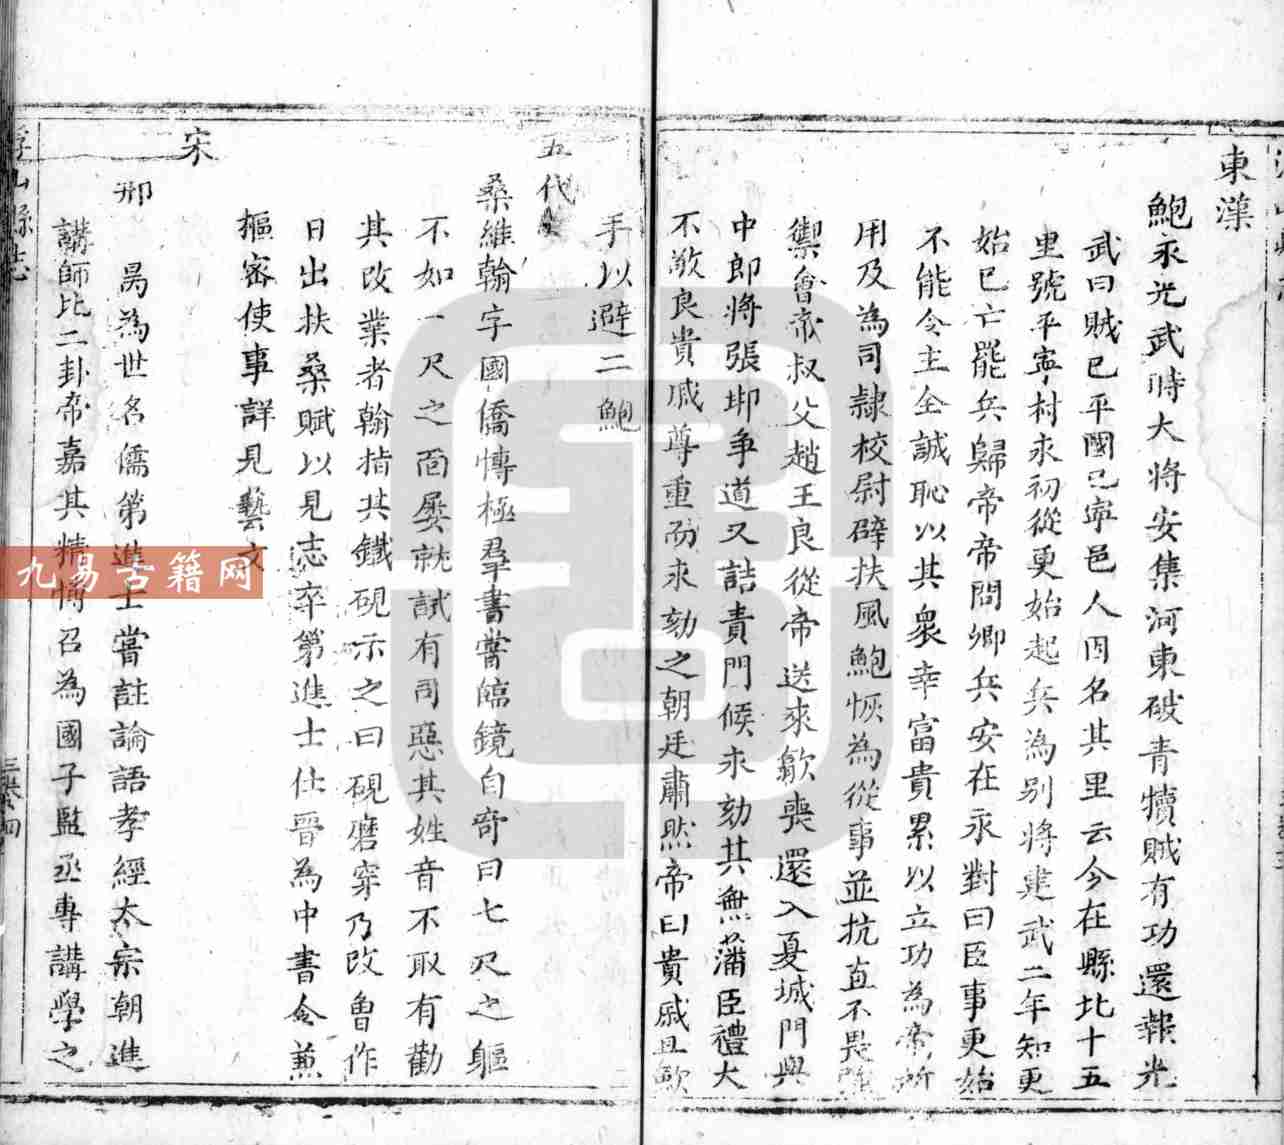 東漢
鮑永光武時大將安集河東破青犢賊有功還報光
武曰賊已平國已寧邑人因名其里云今在縣北十五
里號平寧村永初從更始起兵為別將建武二年知更
始已亡罷兵歸帝帝問卿兵安在永對曰臣事更始
不能令主全誠恥以其衆幸富貴累以立功為帝所
用及為司隸校尉辟扶風鮑恢為從事並抗直不畏強
禦會帝叔父趙王良從帝送來歙喪還入夏城門與
中郎將張邯争道又詰責門候永劾其無藩臣禮大
不敬良貴戚尊重而永劾之朝廷肅然帝曰貴戚且歛
手以避二鮑
五代
桑維翰字國僑博極羣書嘗臨鏡自奇曰七尺之軀
不如一尺之面屢就試有司惡其姓音不取有勸
其改業者翰指其鐵硯示之曰硯磨穿乃改魯作
日出扶桑賦以見志卒第進士仕晉為中書令兼
樞密使事詳見藝文
宋
邢昺為世名儒第進士嘗註論語孝經太宗朝進
講師比二卦帝嘉其精博召為國子監丞專講學之
浮山縣志
卷四
九易古籍网